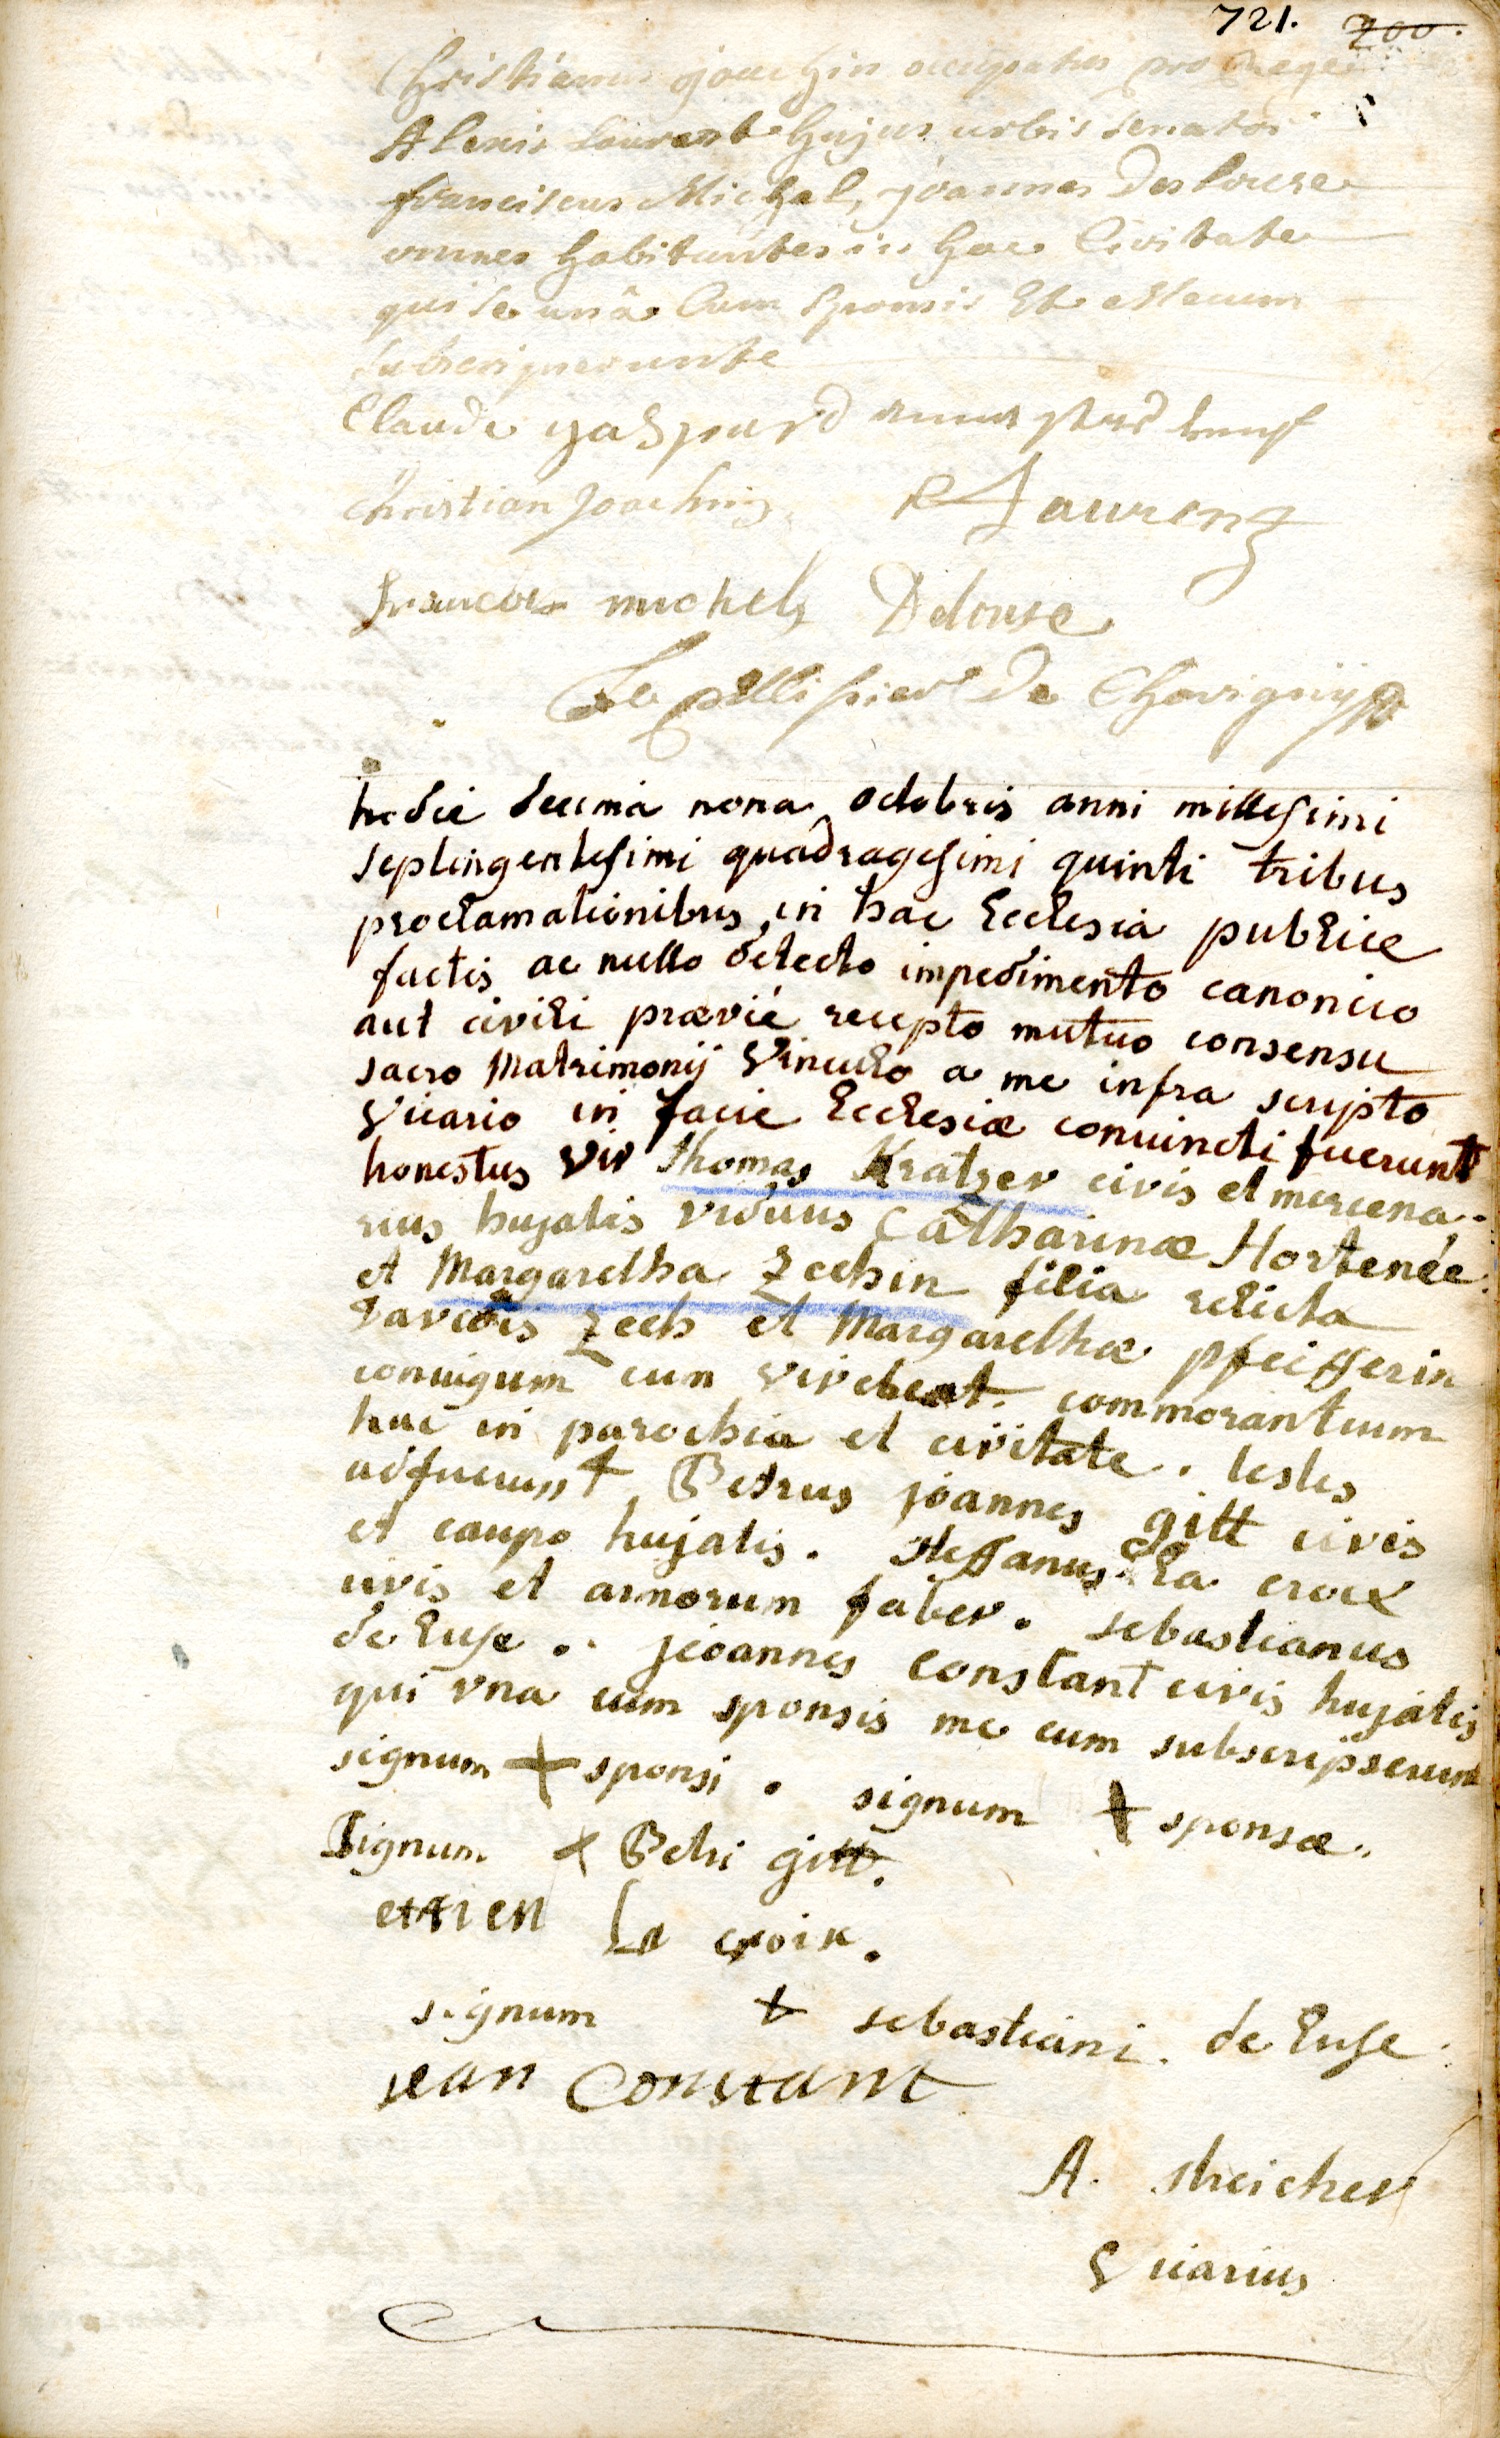 721. 200.
Christianus joachin occupatus pro Rege
Alexis Laurent hujus urbis senator
franciscus Michel, joannes Deslouse
omnes habitantes in hac Civitate
qui se unâ Cum Sponsis Et Mecum
Subscripserunt
Claude gaspard
christian Joachim Laurenz
francois michel Delouse
Le pellissier De Chavigny
hodie decima nona octobris anni millesimi
septingentesimi quadragesimi quinti tribus
proclamationibus in hac Ecclesia publice
factis ac nullo detecto impedimento canonico
aut civili prævié recepto mutuo consensu
sacro Matrimonij Vinculo a me infra scripto
Vicario in facie Ecclesiæ conuincti fuerunt
honestus Vir thomas Kratzer civis et mercena-
rius hujatis viduus Catharinæ Hortenée
et Margaretha Zechin filia relicta
Davidis Zech et Margarethæ pfeifferin
coniugum cum viverent commorantium
hac in parochia et civitate. testes
adfuerunt Petrus joannes gitt civis
et caupo hujatis. steffanus la croix
civis et armorum faber. sebastianus
de luse. jeoannes constant civis hujatis
qui vna cum sponsis me cum subscripserunt
signum + sponsi. signum + sponsæ.
Signum + Petri gitt.
ettien La croix.
signum + sebastiani de luse.
jean Constant
A. streicher
Vicarius